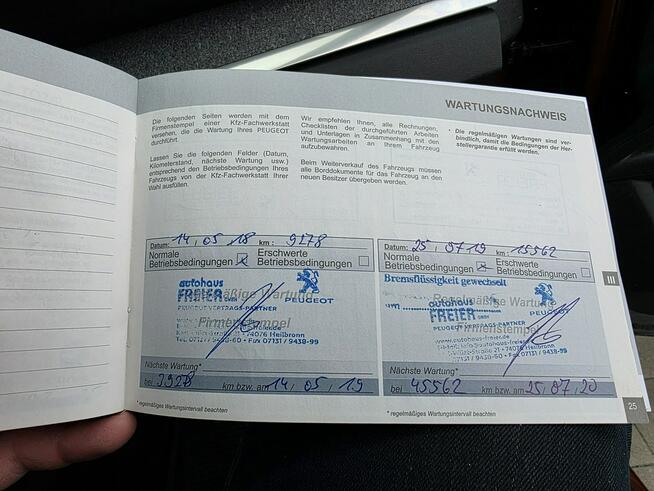 WARTUNGSNACHWEIS
Die folgenden Seiten werden mit dem
Firmenstempel einer Kfz-Fachwerkstatt
versehen, die die Wartung Ihres PEUGEOT
durchführt.
Lassen Sie die folgenden Felder (Datum,
Kilometerstand, nächste Wartung usw.)
entsprechend den Betriebsbedingungen Ihres
Fahrzeugs von der Kfz-Fachwerkstatt Ihrer
Wahl ausfüllen.
Wir empfehlen Ihnen, alle Rechnungen,
Checklisten der durchgeführten Arbeiten
und Unterlagen in Zusammenhang mit den
Wartungsarbeiten an Ihrem Fahrzeug
aufzubewahren.
Beim Weiterverkauf des Fahrzeugs müssen
alle Borddokumente für das Fahrzeug an den
neuen Besitzer übergeben werden.
• Die regelmäßigen Wartungen sind ver-
bindlich, damit die Bedingungen der Her-
stellergarantie erfüllt werden.
Datum: 14, 05, 18 km: 9178
Normale
Betriebsbedingungen
Erschwerte
Betriebsbedingungen
autohaus
FREIER GmbH
Regelmäßige Wartung
PEUGEOT
PEUGEOT VERTRAGS-PARTNER
Firmenstempel
74076 Heilbronn
Tel. 07131 / 9438-60 • Fax 07131 / 9438-99
Nächste Wartung*
bei km bzw. am 14, 05, 19
* regelmäßiges Wartungsintervall beachten
Datum: 25, 07 19 km: 15562
Normale
Betriebsbedingungen
Erschwerte
Betriebsbedingungen
Bremsflüssigkeit gewechselt
autohaus
Regelmäßige Wartung
FREIER GmbH
PEUGEOT
PEUGEOT VERTRAGS-PARTNER
Firmenstempel
74076 Heilbronn
07131 / 9438-60 • Fax 07131 / 9438-99
Nächste Wartung*
bei 45562 km bzw. am 25, 07, 20
* regelmäßiges Wartungsintervall beachten
III
25